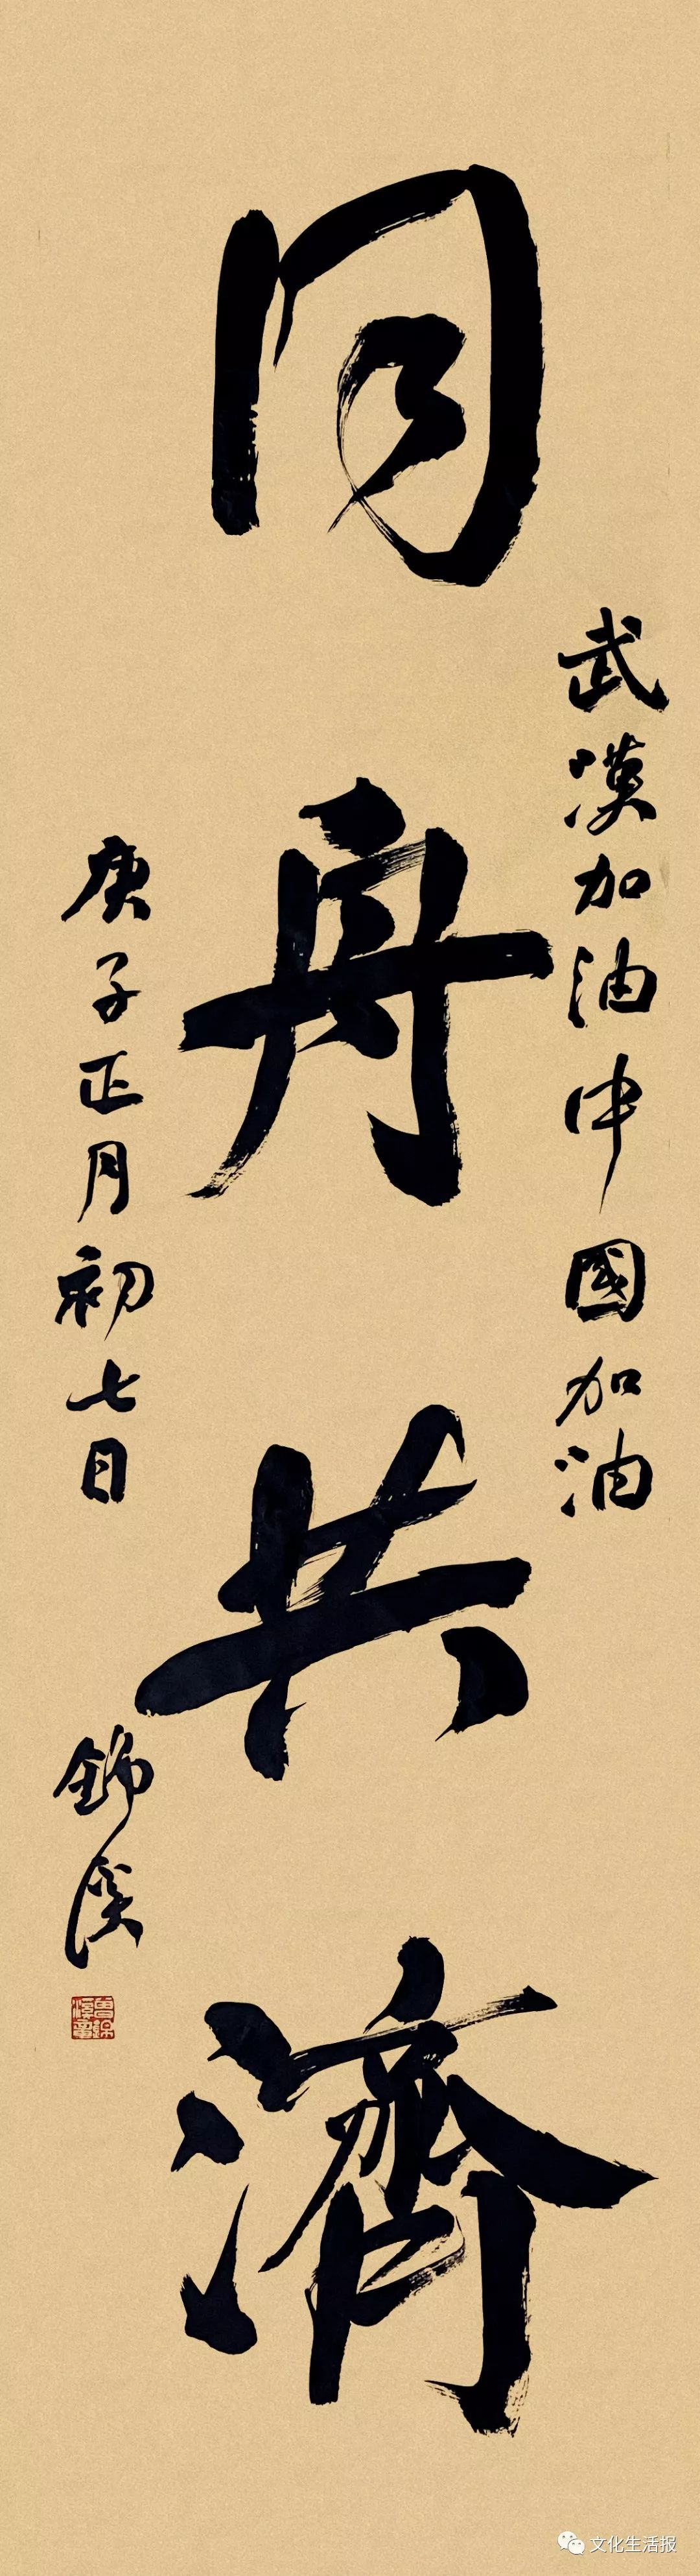 武漢加油中國加油
同舟共濟
庚子正月初七日
錦溪
文化生活报